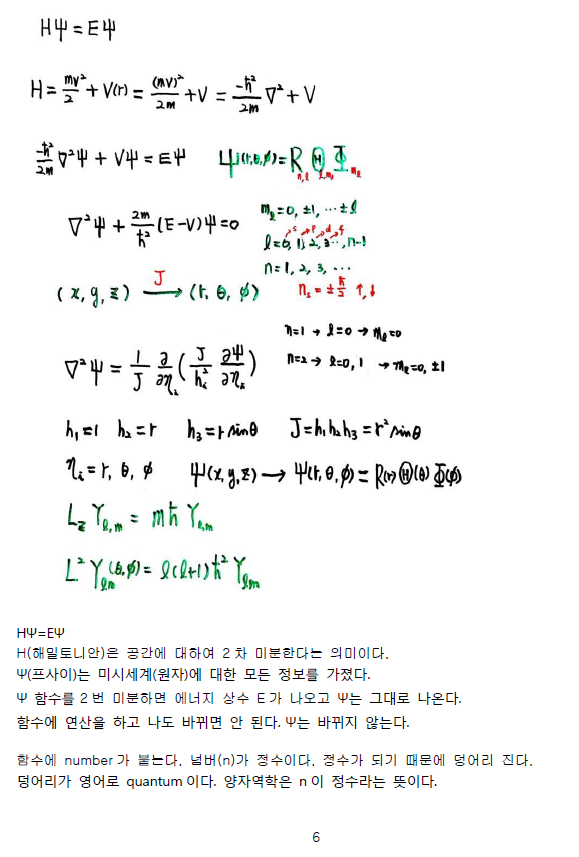 HΨ=EΨ
H = mv²/2 + V(r) = (mv)²/2m + V = -ħ²/2m ∇² + V
-ħ²/2m ∇²Ψ + VΨ = EΨ
Ψ(r,θ,φ) = R Θ Φ
n,l l,mₗ mₗ
∇²Ψ + 2m/ħ² (E-V)Ψ = 0
mₗ = 0, ±1, ⋯ ±l
s p d f
l = 0, 1, 2, 3 ⋯, n-1
n = 1, 2, 3, ⋯
(x, y, z) J→ (r, θ, φ)
nₛ = ± ħ/2 ↑,↓
n=1 → l=0 → mₗ=0
n=2 → l=0, 1 → mₗ=0, ±1
∇²Ψ = 1/J ∂/∂ηᵢ (J/hᵢ² ∂Ψ/∂ηᵢ)
h₁=1 h₂=r h₃=r sinθ J=h₁h₂h₃=r² sinθ
ηᵢ = r, θ, φ Ψ(x,y,z) → Ψ(r,θ,φ) = R(r) Θ(θ) Φ(φ)
L_z Y_l,m = mħ Y_l,m
L² Y_lm(θ,φ) = l(l+1)ħ² Y_lm
HΨ=EΨ
H(해밀토니안)은 공간에 대하여 2차 미분한다는 의미이다.
Ψ(프사이)는 미시세계(원자)에 대한 모든 정보를 가졌다.
Ψ 함수를 2번 미분하면 에너지 상수 E가 나오고 Ψ는 그대로 나온다.
함수에 연산을 하고 나도 바뀌면 안 된다. Ψ는 바뀌지 않는다.
함수에 number가 붙는다. 넘버(n)가 정수이다. 정수가 되기 때문에 덩어리 진다.
덩어리가 영어로 quantum이다. 양자역학은 n이 정수라는 뜻이다.
6